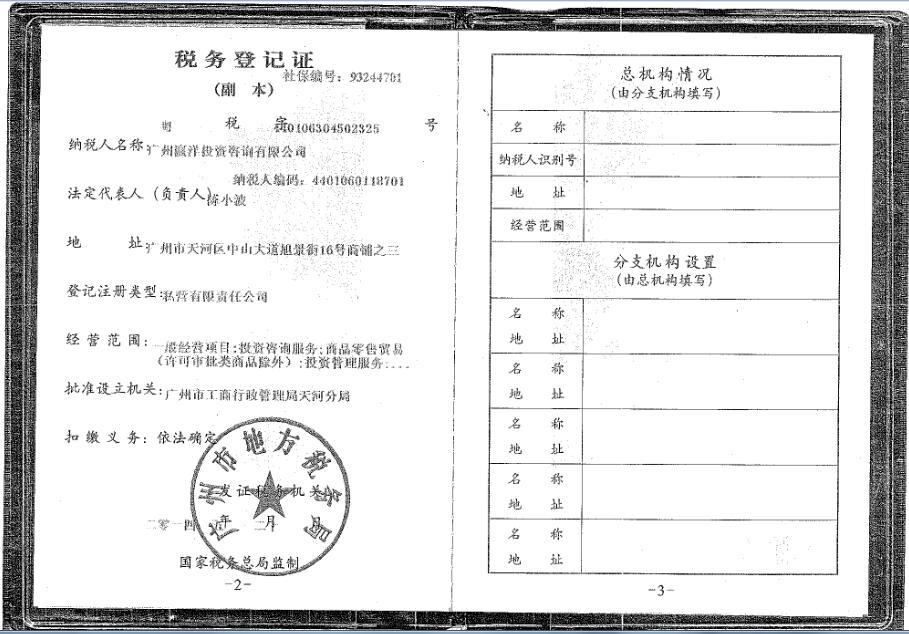 税务登记证
社保编号：93244701
（副 本）
粤 税 字 440106304502325 号
纳税人名称：广州瀛洋投资咨询有限公司
纳税人编码：4401060118701
法定代表人（负责人）：陈小波
地 址：广州市天河区中山大道旭景街16号商铺之三
登记注册类型：私营有限责任公司
经 营 范 围：一般经营项目：投资咨询服务；商品零售贸易
（许可审批类商品除外）；投资管理服务....
批准设立机关：广州市工商行政管理局天河分局
扣 缴 义 务：依法确定
广州市地方税务局
发证税务机关
二零一四 年 二月 日
国家税务总局监制
-2-
总机构情况
（由分支机构填写）
名 称
纳税人识别号
地 址
经营范围
分支机构设置
（由总机构填写）
名 称
地 址
名 称
地 址
名 称
地 址
名 称
地 址
名 称
地 址
-3-